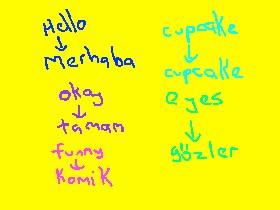 Hello
Merhaba
okay
tamam
funny
komik
cupcake
cupcake
eyes
gözler